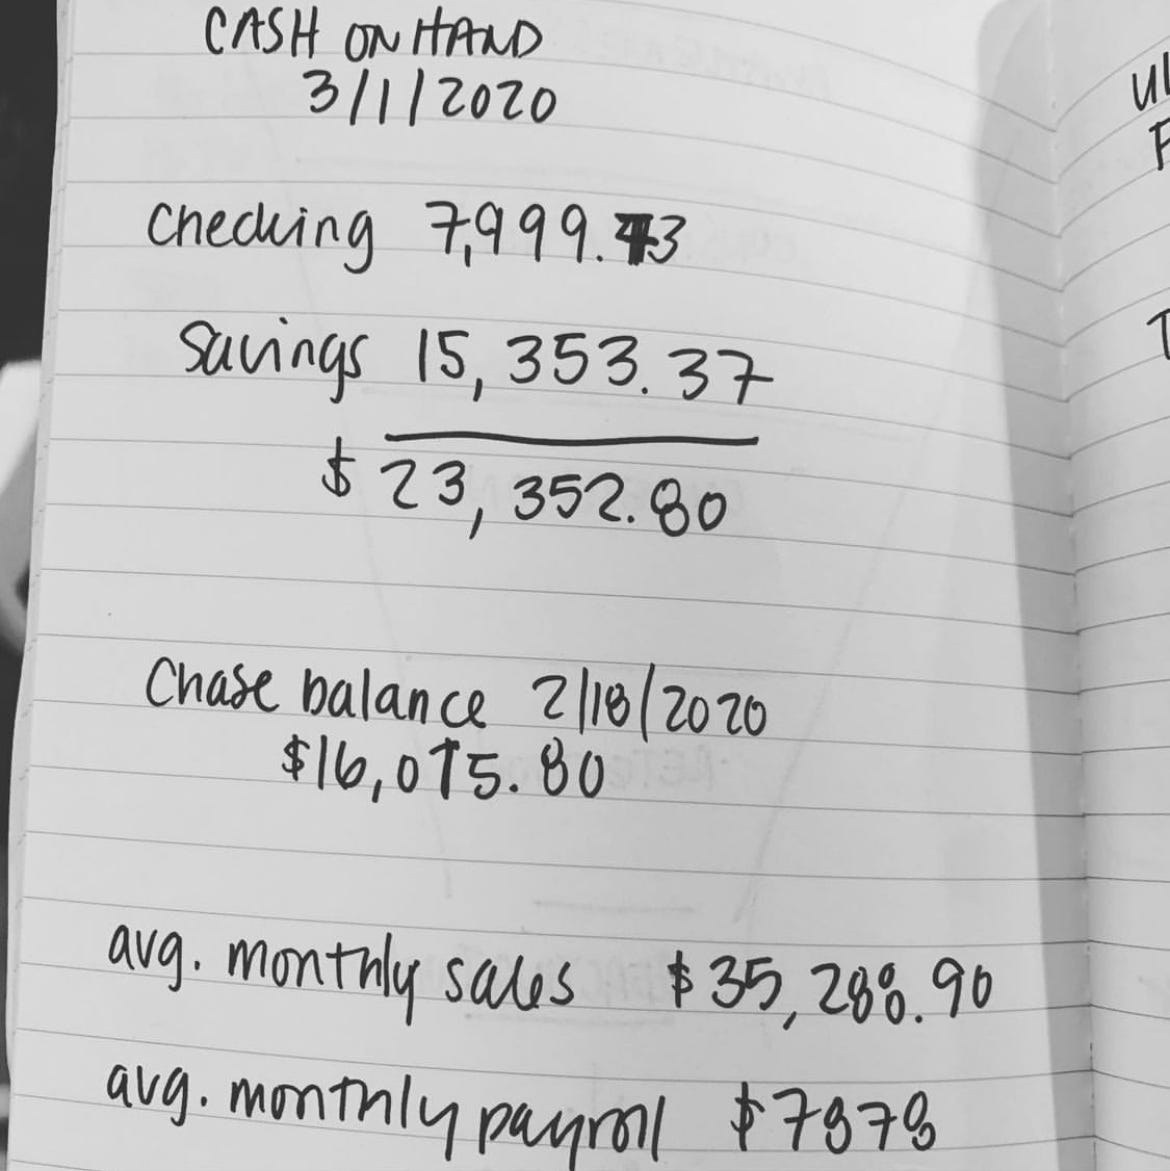 CASH ON HAND
3/1/2020
Checking 7,999.43
Savings 15,353.37
$ 23,352.80
Chase balance 2/18/2020
$16,075.80
avg. monthly sales $35,288.90
avg. monthly payroll $7878